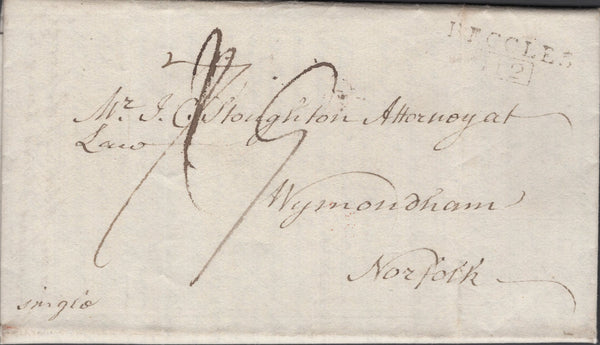 BECCLES
2
Mr. J. C. Stoughton Attorney at
Law
Wymondham
Norfolk
single